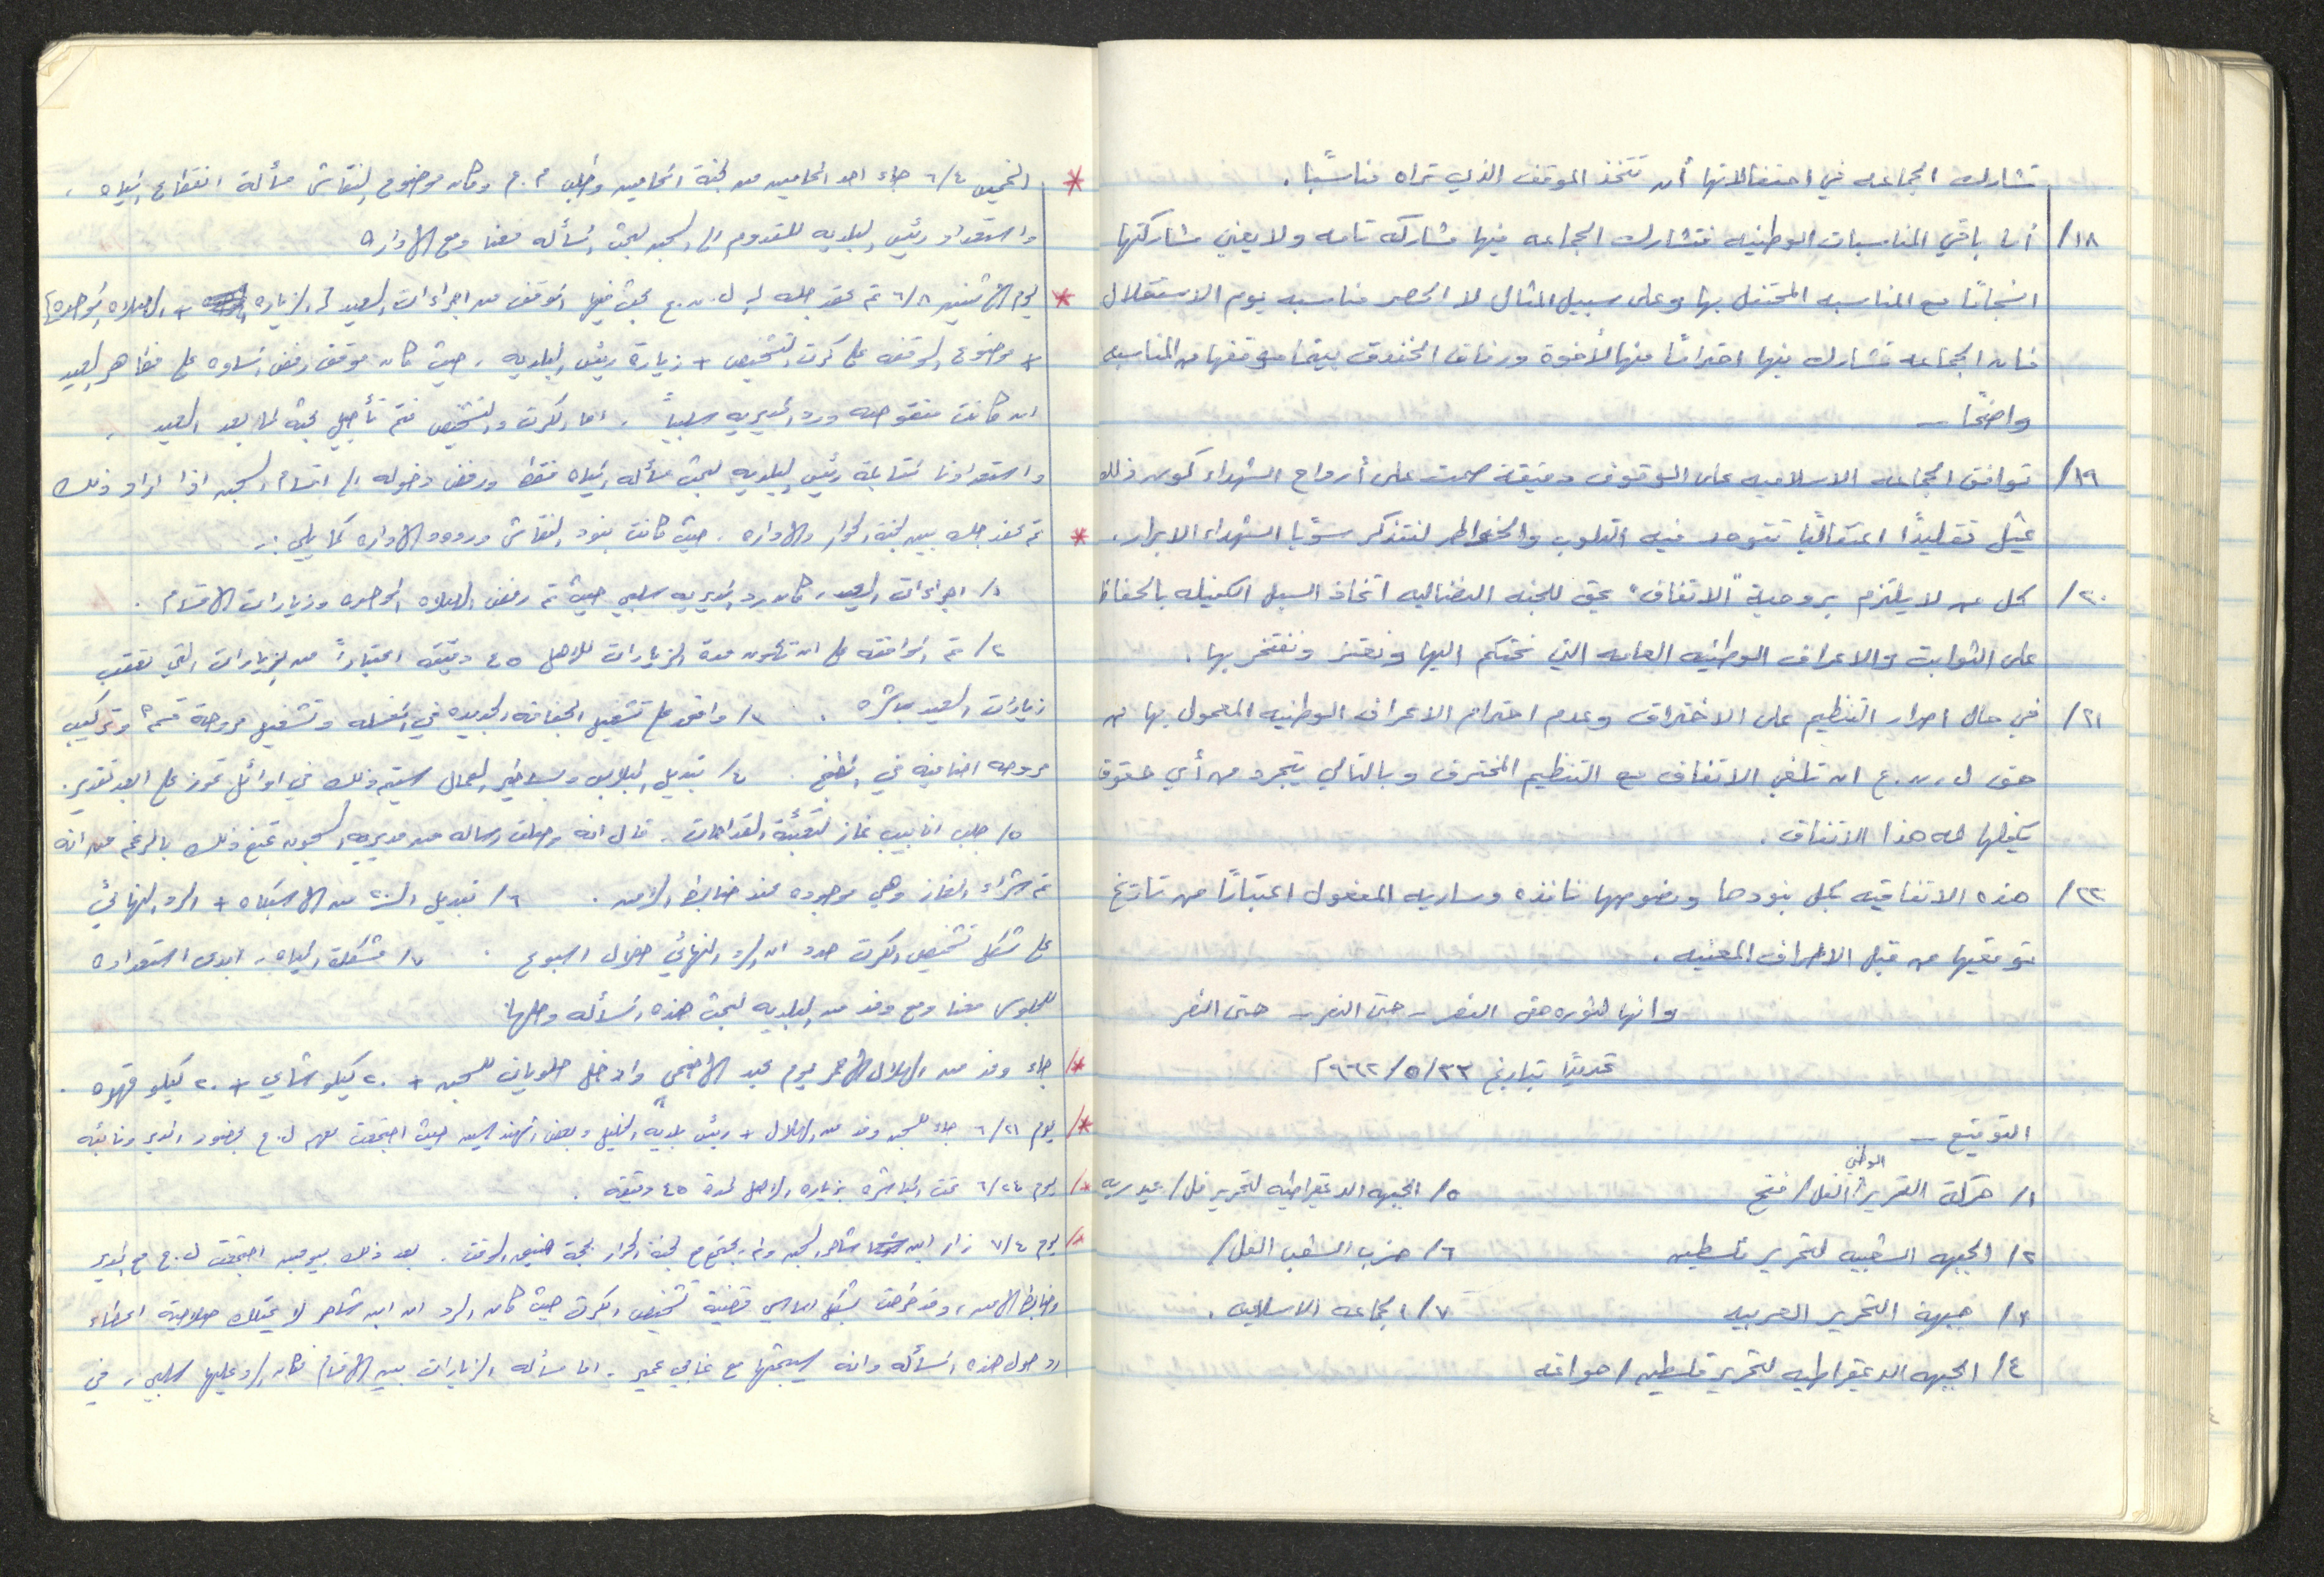 تشارك الجماعه في احتفالاتها أن تتخذ الموقف الذي تراه مناسبًا.
١٨/ أما باقي المناسبات الوطنيه فتشارك الجماعه فيها مشاركه تامه ولا يعني مشاركتها
انسجامًا مع المناسبه المحتفل بها وعلى سبيل المثال لا الحصر مناسبه يوم الاستقلال
فان الجماعه تشارك فيها احترامًا منها لأخوة ورفاق الخندق بينما موقفها من المناسبه
واضحًا -
١٩/ توافق الجماعه الاسلاميه على الوقوف دقيقة صمت على أرواح الشهداء كون ذلك
يمثل تقليدًا اعتقاليًا تتوحد فيه القلوب والخواطر لنتذكر سويًا الشهداء الابرار.
٢٠/ كل من لا يلتزم بروحية "الاتفاق" يحق للجنه النضاليه اتخاذ السبل الكفيله بالحفاظ
على الثوابت والاعراف الوطنيه العامه التي نحتكم اليها ونعتز ونفتخر بها.
٢١/ في حال اصرار التنظيم على الاختراق وعدم احترام الاعراف الوطنيه المعمول بها من
حق ل.ن.ع ان تلغي الاتفاق مع التنظيم المخترق وبالتالي يتجرد من أي حقوق
يكفلها له هذا الاتفاق.
٢٢/ هذه الاتفاقيه بكل بنودها ونصوصها نافذه وساريه المفعول اعتبارًا من تاريخ
توقيعها من قبل الاطراف المعنيه.
وانها لثوره حتى النصر - حتى النصر - حتى النصر
تحريرًا بتاريخ ٢٣/٥/
التوقيع -
١/ حركة التحرير الوطني الفل/ فتح
٥/ الجبهه الديمقراطيه لتحرير فل/ عبدربه
٢/ الجبهه الشعبيه لتحرير فلسطين
٦/ حزب الشعب الفل/
٣/ جبهة التحرير العربيه
٧/ الجماعه الاسلاميه.
٤/ الجبهه الديمقراطيه لتحرير فلسطين/ حواتمه
* الخميس ٦/٤ جاء احد المحامين من لجنة المحامين وطلب م.م وكان موضوع النقاش مسألة انقطاع المياه،
واستعداد رئيس البلديه للقدوم الى السجن لبحث المسأله معنا ومع الاداره
* يوم الاثنين ٦/٨ تم عقد جلسه لـ ل.ن.ع بحث فيها الموقف من اجراءات العيد لـ الزياره + الصلاه الموحده
+ موضوع الموقف على كرت التشخيص + زيارة رئيس البلديه، حيث كان موقف رفض المساوه على مظاهر العيد
ان كانت منقوصه ورد المديريه سلبياً. اما الكرت والتشخيص فتم تأجيل بحثه لما بعد العيد،
واستعدادنا لمقابلة رئيس البلديه لبحث مسأله المياه فقط ورفض دخوله الى اقسام السجن اذا اراد ذلك
* تم عقد جلسه بين لجنة الحوار والاداره، حيث كانت بنود النقاش وردود الاداره كما يلي:-
١/ اجراءات العيد، كان رد المديريه سلبي حيث تم رفض الصلاه الموحده وزيارات الاقسام.
٢/ تم الموافقه على ان تكون مدة الزيارات للاهل ٤٥ دقيقه اعتباراً من الزيارات التي تعقب
زيارات العيد مباشره. ٣/ وافقو على تشغيل الجفافه الجديده في المغسله وتشغيل مروحة قسم وتركيب
مروحه اضافيه في المطبخ. ٤/ تبديل البلابل وبساطير العمال سيتم ذلك في اوائل تموز على ابعد تقدير.
٥/ جلب انابيب غاز لتعبئة القداحات. قال انه وصلت رساله من مديريه السجون تمنع ذلك بالرغم من انه
تم شراء الغاز وهي موجوده عند ضابط الامن. ٦/ تبديل الـ ٢٠٪ من الاشباه + الرد النهائي
على شكل تشخيص الكرت حدد ان الرد النهائي خلال اسبوع. ٧/ مشكلة المياه، ابدى استعداده
للجلوس معنا ومع وفد من البلديه لبحث هذه المسأله وحلها.
*/ جاء وفد من الهلال الاحمر يوم عيد الاضحى وادخل حلويات للسجن + ٢٠ كيلو شاي + ٢٠ كيلو قهوه.
*/ يوم ٦/٢١ جاء للسجن وفد من الهلال + رئيس بلدية الخليل وبعض المهندسين حيث اجتمعت معهم ل.ح بحضور المدير ونائبه
*/ يوم ٦/٢٤ تمت المباشره بزياره الاهل لمدة ٤٥ دقيقه.
*/ يوم ٧/٤ زار ابن شاحر السجن ولم يجتمع مع لجنة الحوار بحجة ضيق الوقت. بعد ذلك بيومين اجتمعت ل.ح مع المدير
وضابط الامن، وقد طرحت بشكل اساسي قضية تشخيص الكرت حيث كان الرد ان ابن شاحر لا يمتلك صلاحية اعطاء
رد حول هذه المسأله وانه سيبحثها مع غابي عمير. اما مسأله الزيارات بين الاقسام فكان الرد عليها سلبي، في